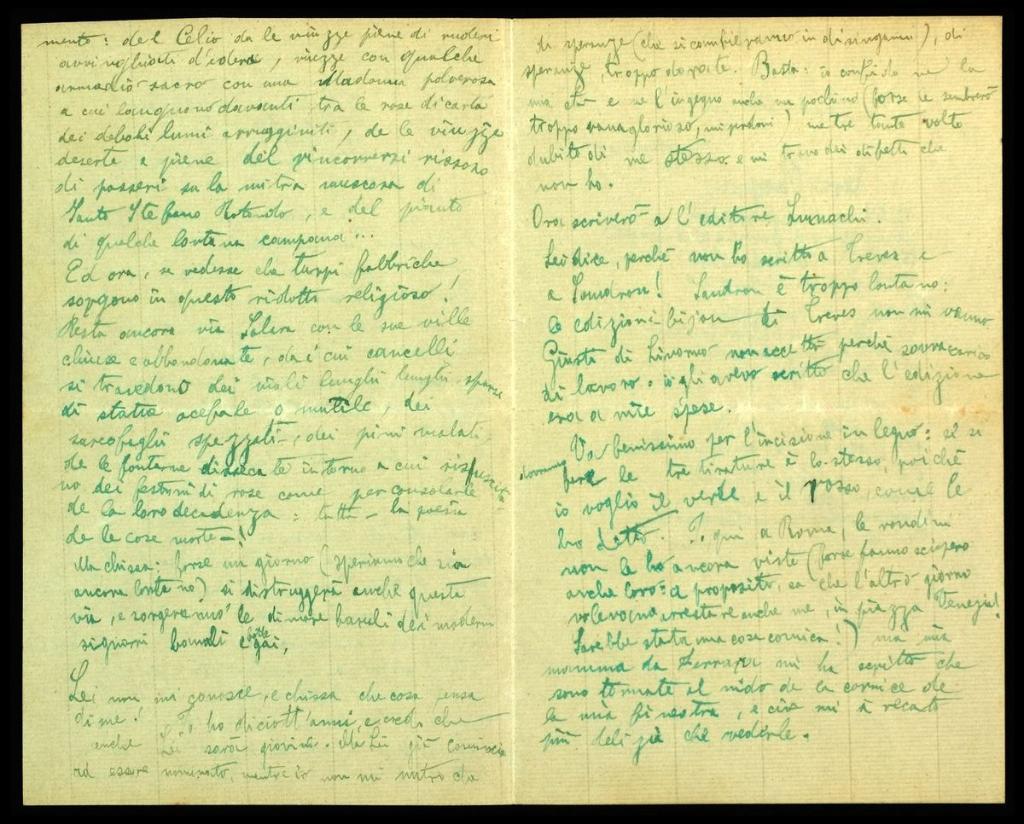 mento: del Celio da le viuzze piene di ruderi
avvinghiati d'edera, viuzze con qualche
armadio sacro con una Madonna polverosa
a cui languono davanti tra le rose di carta
dei deboli lumi arrugginiti, de le viuzze
deserte e piene del rincorrersi rissoso
di passeri su la mitra muscosa di
Santo Stefano Rotondo, e del pianto
di qualche lontana campana...
Ed ora, se vedesse che turpi fabbriche
sorgono in questo ridotto religioso!
Resta ancora via Salara con le sue ville
chiuse e abbandonate, da i cui cancelli
si travedono dei viali lunghi lunghi sparsi
di statue acefale o mutile, dei
sarcofaghi spezzati, dei pini malati,
de le fontane disseccate intorno a cui
no dei festoni di rose come per consolarle
de la loro decadenza: tutta la poesia
de le cose morte!
Ma chissà: forse un giorno (speriamo che sia
ancora lontano) si distruggerà anche questa
via, e sorgeranno le dimore banali dei moderni
signori banali e gai.
Lei non mi conosce, e chissà che cosa pensa
di me! Io ho diciott'anni, e credo che
anche Lei sarà giovine. Ma Lei già comincia
ad essere nominato, mentre io non mi nutro che
di speranze (che si cambieranno in disinganni), di
speranze troppo dorate. Basta: io confido ne la
mia età e ne l'ingegno anche un pochino (forse le sembrerò
troppo vanaglorioso, mi perdoni) mentre tante volte
dubito di me stesso e mi trovo dei difetti che
non ho.
Ora scriverò a l'editore Lumachi.
Lei dice, perché non ho scritto a Treves e
a Sandron! Sandron è troppo lontano:
le edizioni bijou di Treves non mi vanno
Giusti di Livorno non accettò perché sovraccarico
di lavoro: io gli avevo scritto che l'edizione
era a mie spese.
Va benissimo per l'incisione in legno: e si
dovranno fare le tre tirature è lo stesso, poiché
io voglio il verde e il rosso, come le
ho detto. Io qui a Roma, le rondini
non le ho ancora viste (forse fanno sciopero
anche loro: a proposito, sa che l'altro giorno
volevano arrestare anche me, in piazza Venezia!
Sarebbe stata una cosa comica!) ma mia
mamma da Ferrara mi ha scritto che
sono tornate al nido de la cornice de
la mia finestra, e ciò mi à recato
più delizia che vederle.